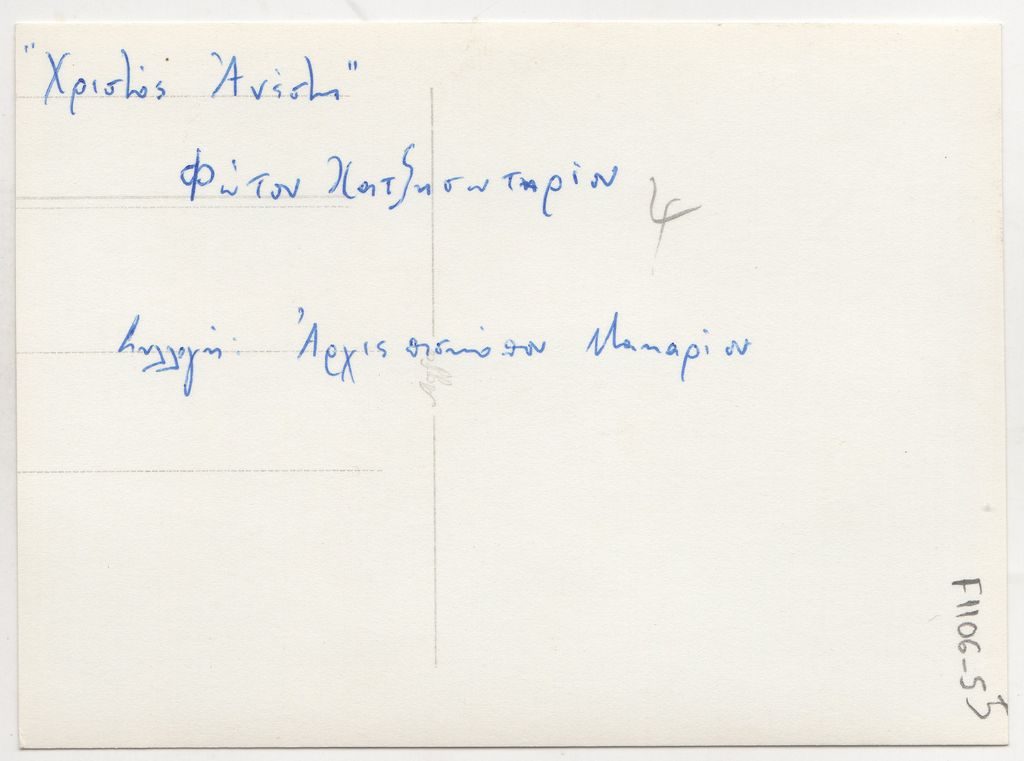 "Χριστός Ἀνέστη"
Φώτου Χατζησωτηρίου
Συλλογή: Ἀρχιεπισκόπου Μακαρίου
F1106-53